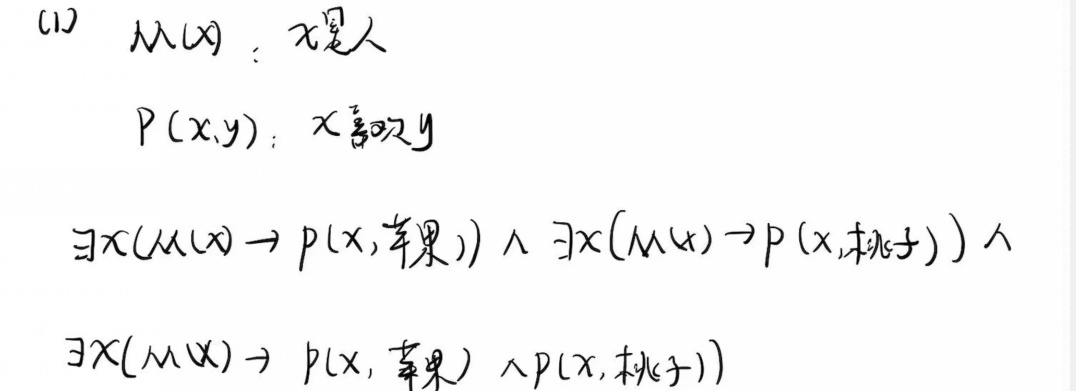 (1) M(x)：x是人
P(x,y)：x喜欢y
∃x(M(x)→p(x,苹果))∧∃x(M(x)→p(x,桃子))∧
∃x(M(x)→p(x,苹果)∧p(x,桃子))